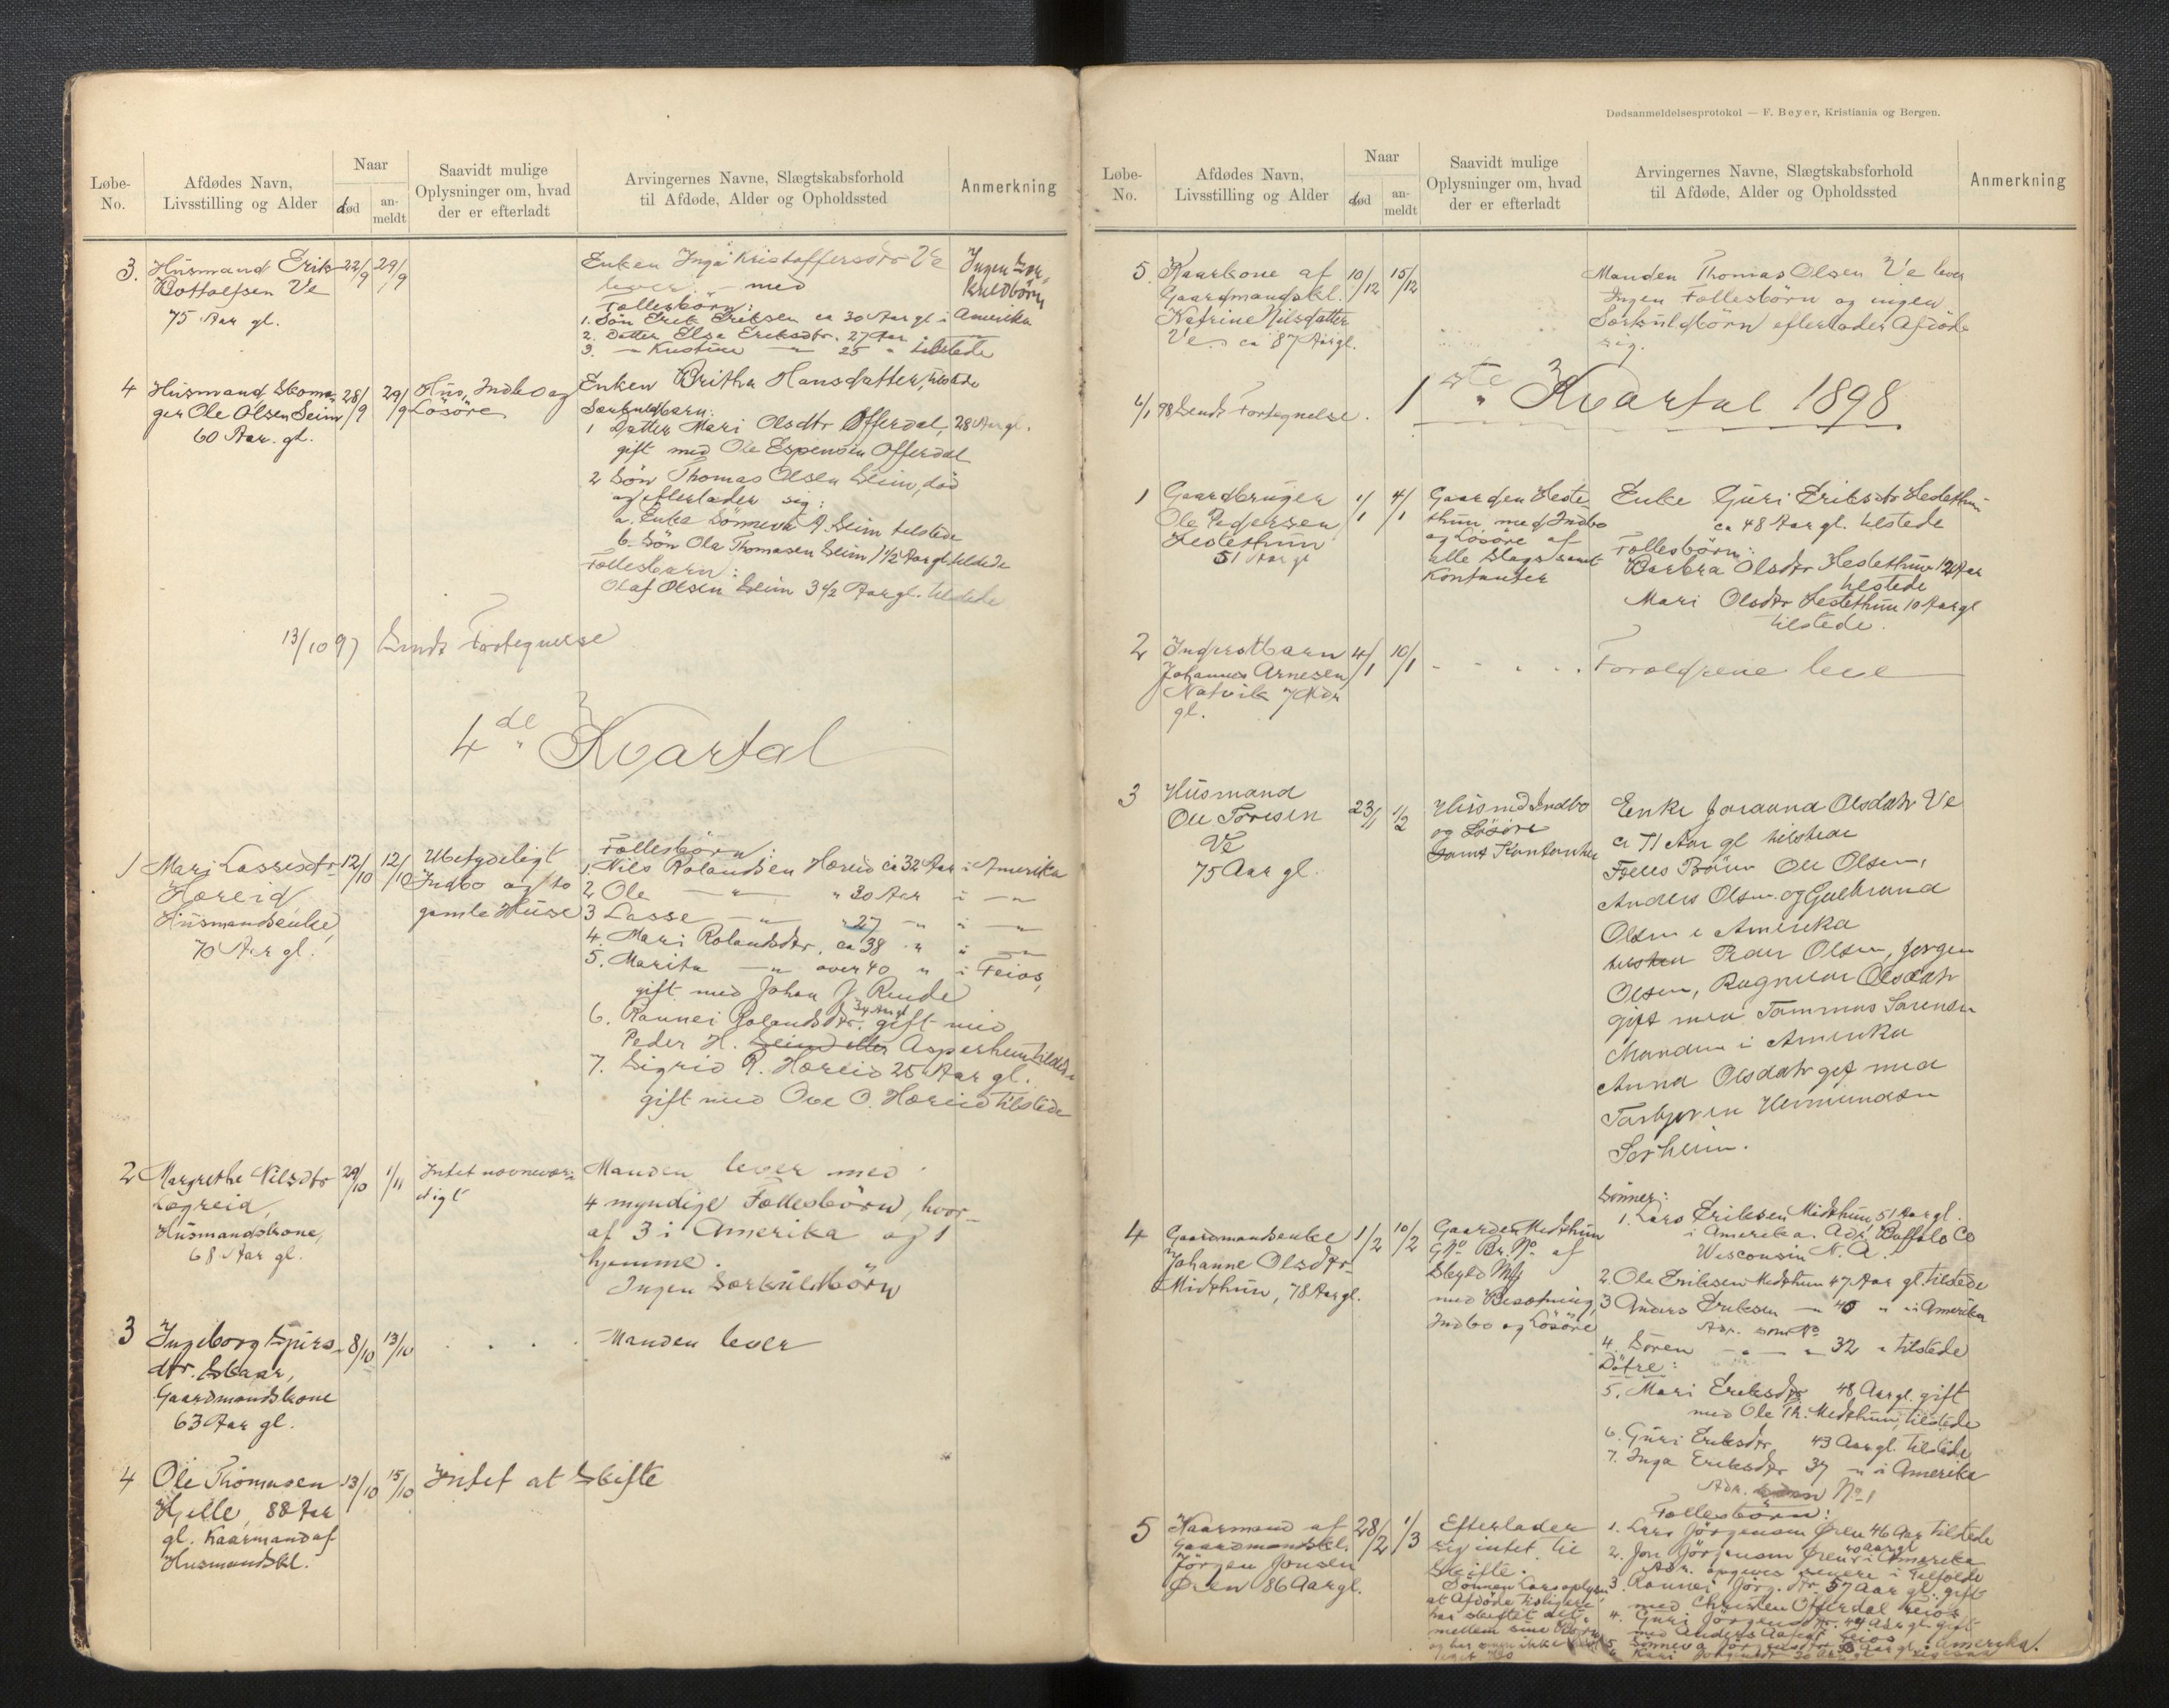 Løbe-
No.
Afdødes Navn,
Livsstilling og Alder
Naar
død
an-
meldt
Saavidt mulige
Oplysninger om, hvad
der er efterladt
Arvingernes Navne, Slægtskabsforhold
til Afdøde, Alder og Opholdssted
Anmerkning
3. Husmand Erik
Bottolfsen Ve
75 Aar gl.
22/9 29/9
Enken Inga Kristoffersdtr Ve
lever med
Fællesbörn:
1. Sön Erik Eriksen ca 30 Aar gl i Amerika
2. Datter Elsa Eriksdtr. 27 Aar
3. — Kristine — 25 " tilstede
Ingen Sær-
kuldbörn
4 Husmand, Skoma-
ger Ole Olsen Seim
60 Aar. gl.
28/9 29/9
Hus, Indbo og
Lösöre
Enken Britha Hansdatter, tilstede
Særkuldbarn:
1 Datter Mari Olsdtr Offerdal, 28 Aar gl.
gift med Ole Espensen Offerdal
2 Sön Thomas Olsen Seim, död
og efterlader sig:
a. Enke Sönneva A. Seim tilstede
b. Sön Ola Thomasen Seim 1 1/2 Aar gl. tilstede
Fællesbarn:
Olaf Olsen Seim 3 1/2 Aar gl. tilstede
13/10 97 Sendt Fortegnelse
4de Kvartal
1 Mari Lassesdtr
Hæreid
Husmandsenke
70 Aar gl.
12/10 12/10
Ubetydeligt
Indbo og to
gamle Huse
Fællesbörn:
1. Nils Rolandsen Hæreid ca 32 Aar i Amerika
2 Ole — " — " 30 Aar i — "
3 Lasse — " — " 27 — " i — "
4. Mari Rolandsdtr. ca 38 " i — "
5. Marita — " over 40 " i Feios,
gift med Johan J. Rinde
6. Rannei Rolandsdtr. 34 Aar gl gift med
Peder H. Seim eller Asperheim tilstede
7. Sigrid R. Hæreid 25 Aar gl.
gift med Ove O. Hæreid tilstede
2 Margrethe Nilsdtr
Lægreid,
Husmandskone,
68 Aar gl.
29/10 1/11
Intet navnevær-
digt
Manden lever med
4 myndige Fællesbörn, hvor-
af 3 i Amerika og 1
hjemme.
Ingen Særkuldbörn
3 Ingeborg Sjurs-
dtr. Skaar,
Gaardmandskone
63 Aar gl.
8/10 13/10
Manden lever
4 Ole Thomasen
Hjelle, 88 Aar
gl. Kaarmand af
Husmandskl.
13/10 15/10
Intet at Skifte
Dødsanmeldelsesprotokol — F. Beyer, Kristiania og Bergen.
Løbe-
No.
Afdødes Navn,
Livsstilling og Alder
Naar
død
an-
meldt
Saavidt mulige
Oplysninger om, hvad
der er efterladt
Arvingernes Navne, Slægtskabsforhold
til Afdøde, Alder og Opholdssted
Anmerkning
5 Kaarkone af
Gaardmandskl.
Katrine Nilsdatter
Ve. ca 87 Aar gl.
10/12 15/12
Manden Thomas Olsen Ve lever
Ingen Fællesbörn og ingen
Særkuldbörn efterlader Afdöde
sig.
4/1 98 Sendt Fortegnelse.
1ste Kvartal 1898
1 Gaardbruger
Ole Pedersen
Hestethun
51 Aar gl
1/1 4/1
Gaarden Heste-
thun med Indbo
og Lösöre af
alle Slags samt
Kontanter
Enke Guri Eriksdtr Hestethun
ca 48 Aar gl. tilstede
Fællesbörn:
Barbra Olsdtr Hestethun 12 Aar
tilstede
Mari Olsdtr Hestethun 10 Aar gl
tilstede.
2 Inderstbarn
Johannes Arnesen
Natvik 7 Mdr
gl.
4/1 10/1
Forældrene leve
3 Husmand
Ole Torresen
Ve
75 Aar gl.
23/1 1/2
Hus md Indbo
og Lösöre
samt Kontanter
Enke Joranna Olsdatr Ve
ca 71 Aar gl tilstede
Fælles Börn Ole Olsen,
Anders Olsen og Gulbrand
Olsen i Amerika
tilsted Peder Olsen, Jørgen
Olsen, Ragnilda Olsdatr
gift med Tommas Sørensen
Manden i Amerika
Anna Olsdatr gift med
Torbjørn Hermundsen
Sørheim.
4 Gaardmandsenke
Johanne Olsdtr-
Midthun, 78 Aar gl.
1/2 10/2
Gaarden Midthun
GNo Br. No af
Skyld Mk
med Besætning,
Indbo og Lösöre
Sönner:
1. Lars Eriksen Midthun, 51 Aar gl.
i Amerika. Adr. Buffalo Co
Wisconsin N. A.
2. Ola Eriksen Midthun 47 Aar gl. tilstede
3 Anders Eriksen — 40 " i Amerika
Adr. som No 1
4. Sören — " — 32 " tilstede
Dötre:
5. Mari Eriksdtr 48 Aar gl. gift
med Ole Th. Midthun, tilstede
6. Guri Eriksdtr 43 Aar gl. tilstede
7. Inga Eriksdtr 37 — " i Amerika
Adr. No 1
5 Kaarmand af
Gaardmandskl.
Jörgen Jonsen
Øren 86 Aar gl.
28/2 1/3
Efterlader
sig intet til
Skifte.
Sönnen Lars oplyser
at Afdöde tidligere
har skiftet det
mellem sine Börn
Fællesbörn:
1. Lars Jörgensen Øren 46 Aar tilstede
2. Jon Jörgensen Øren 40 Aar gl i Amerika
Adr. opgives senere i Tilfælde
3. Rannei Jörg. dtr. 57 Aar gl. gift
med Christen Offerdal Feios
4. Guri Jörgensdtr. 44 Aar gl. gift
med Anders Feios
5. Sönneva Jörgensdtr Aar gl. i Amerika.